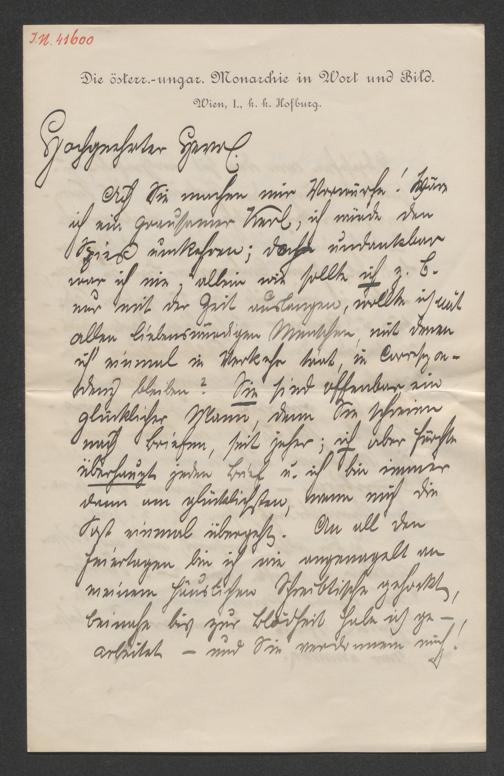 I.N. 41600
Die österr.-ungar. Monarchie in Wort und Bild.
Wien, I., k. k. Hofburg.
Hochgeehrter Herr!
Ach Sie machen mir Vorwürfe! Wäre
ich ein grausamer Kerl, ich würde den
Spieß umkehren; doch undankbar
war ich nie, allein wie sollte ich z. B.
nur mit der Zeit auslangen, wollte ich mit
allen liebenswürdigen Menschen, mit denen
ich einmal in Verkehr trat, in Correspon-
denz bleiben? Sie sind offenbar ein
glücklicher Mann, denn Sie scheinen
nach Briefen, seit jeher; ich aber fürchte
überhaupt jeden Brief u. ich bin immer
dann am glücklichsten, wenn mich die
Post einmal übergeht. An all den
Feiertagen bin ich wie angenagelt an
meinem häuslichen Schreibtische gehockt,
beinahe bis zur Blödheit habe ich ge-
arbeitet – und Sie verdammen mich!